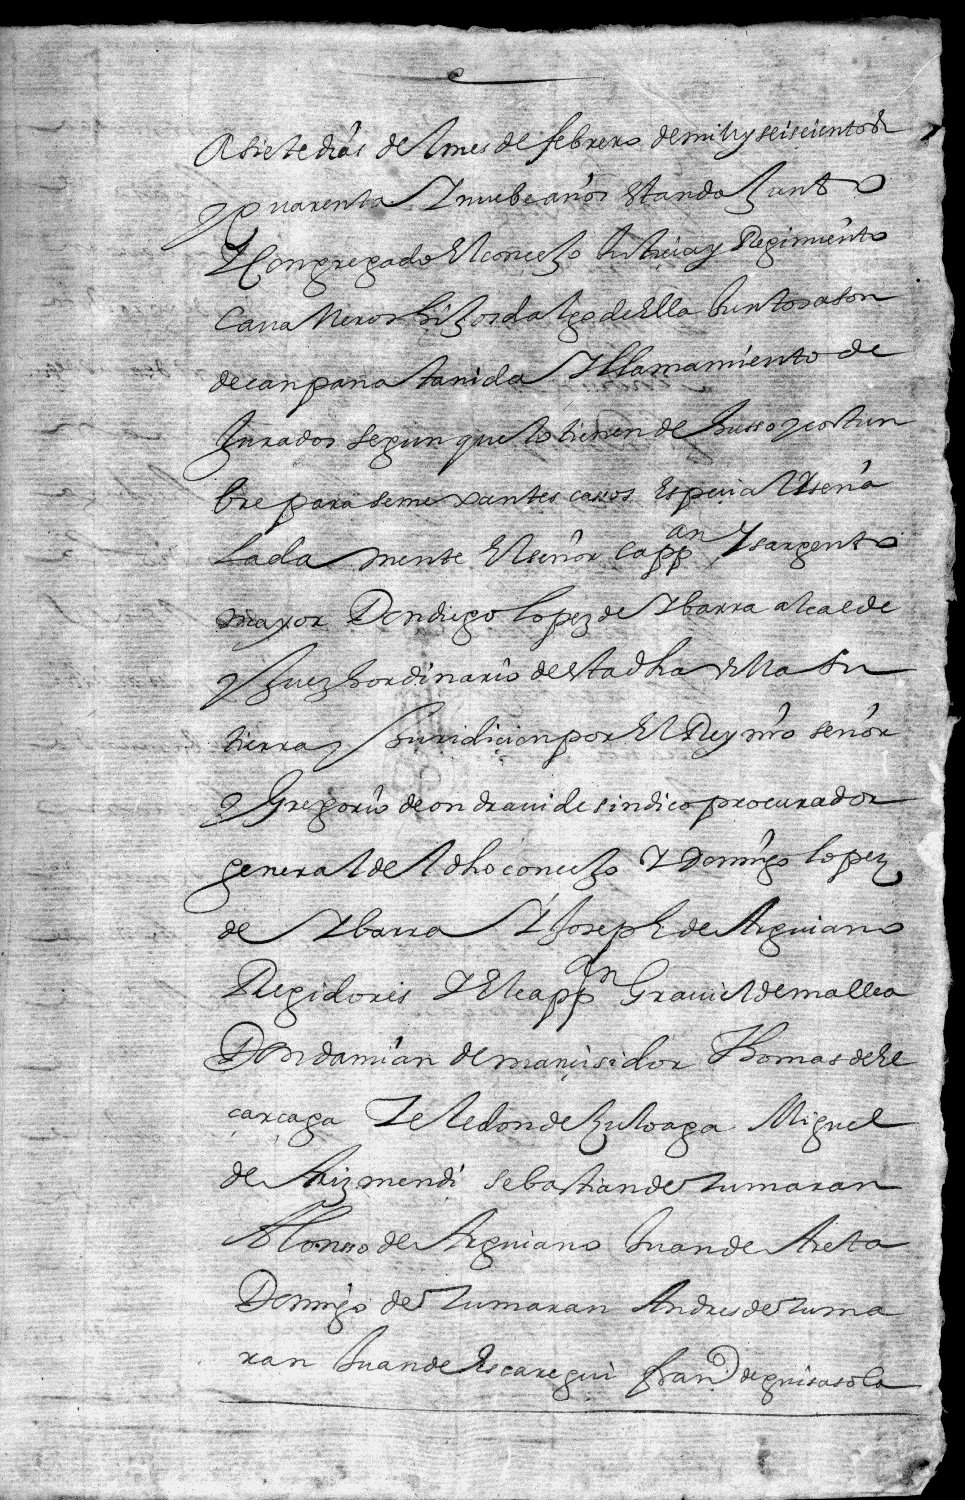 A siete dias del mes de febrero de mily seiscientos
y quarenta Y nuebe años Estando Junto
Y Congregado El conçejo Justicia y Regimiento
Cavalleros hijosdalgo de Ella Juntos a son
de canpana tanida Y llamamiento de
Jurados segun que lo tienen de husso y costun
bre para semexantes casos Espeçial Y seña
lada mente El señor capp an Y sargento
mayor Don diego lopez de Ybarra alcalde
y Juez hordinario de esta dha villa su
tierra y Juridiçion por El Rey nro señor
y Gregorio de ondraui de sindico procurador
general del dho conçejo Y Domingo lopez
de Ybarra Y Joseph de Arguiano
Regidores Y El capp an Graviel de mallea
Don damian de mançisidor Thomas de El
carçaga Zeledon de Zuloaga Miguel
de Arizmendi sebastian de Zumaran
Alonsso de Arguiano Juan de Areta
Domingo de Zumaran Andres de Zuma
ran Juan de Ascaregui fran de guisasola